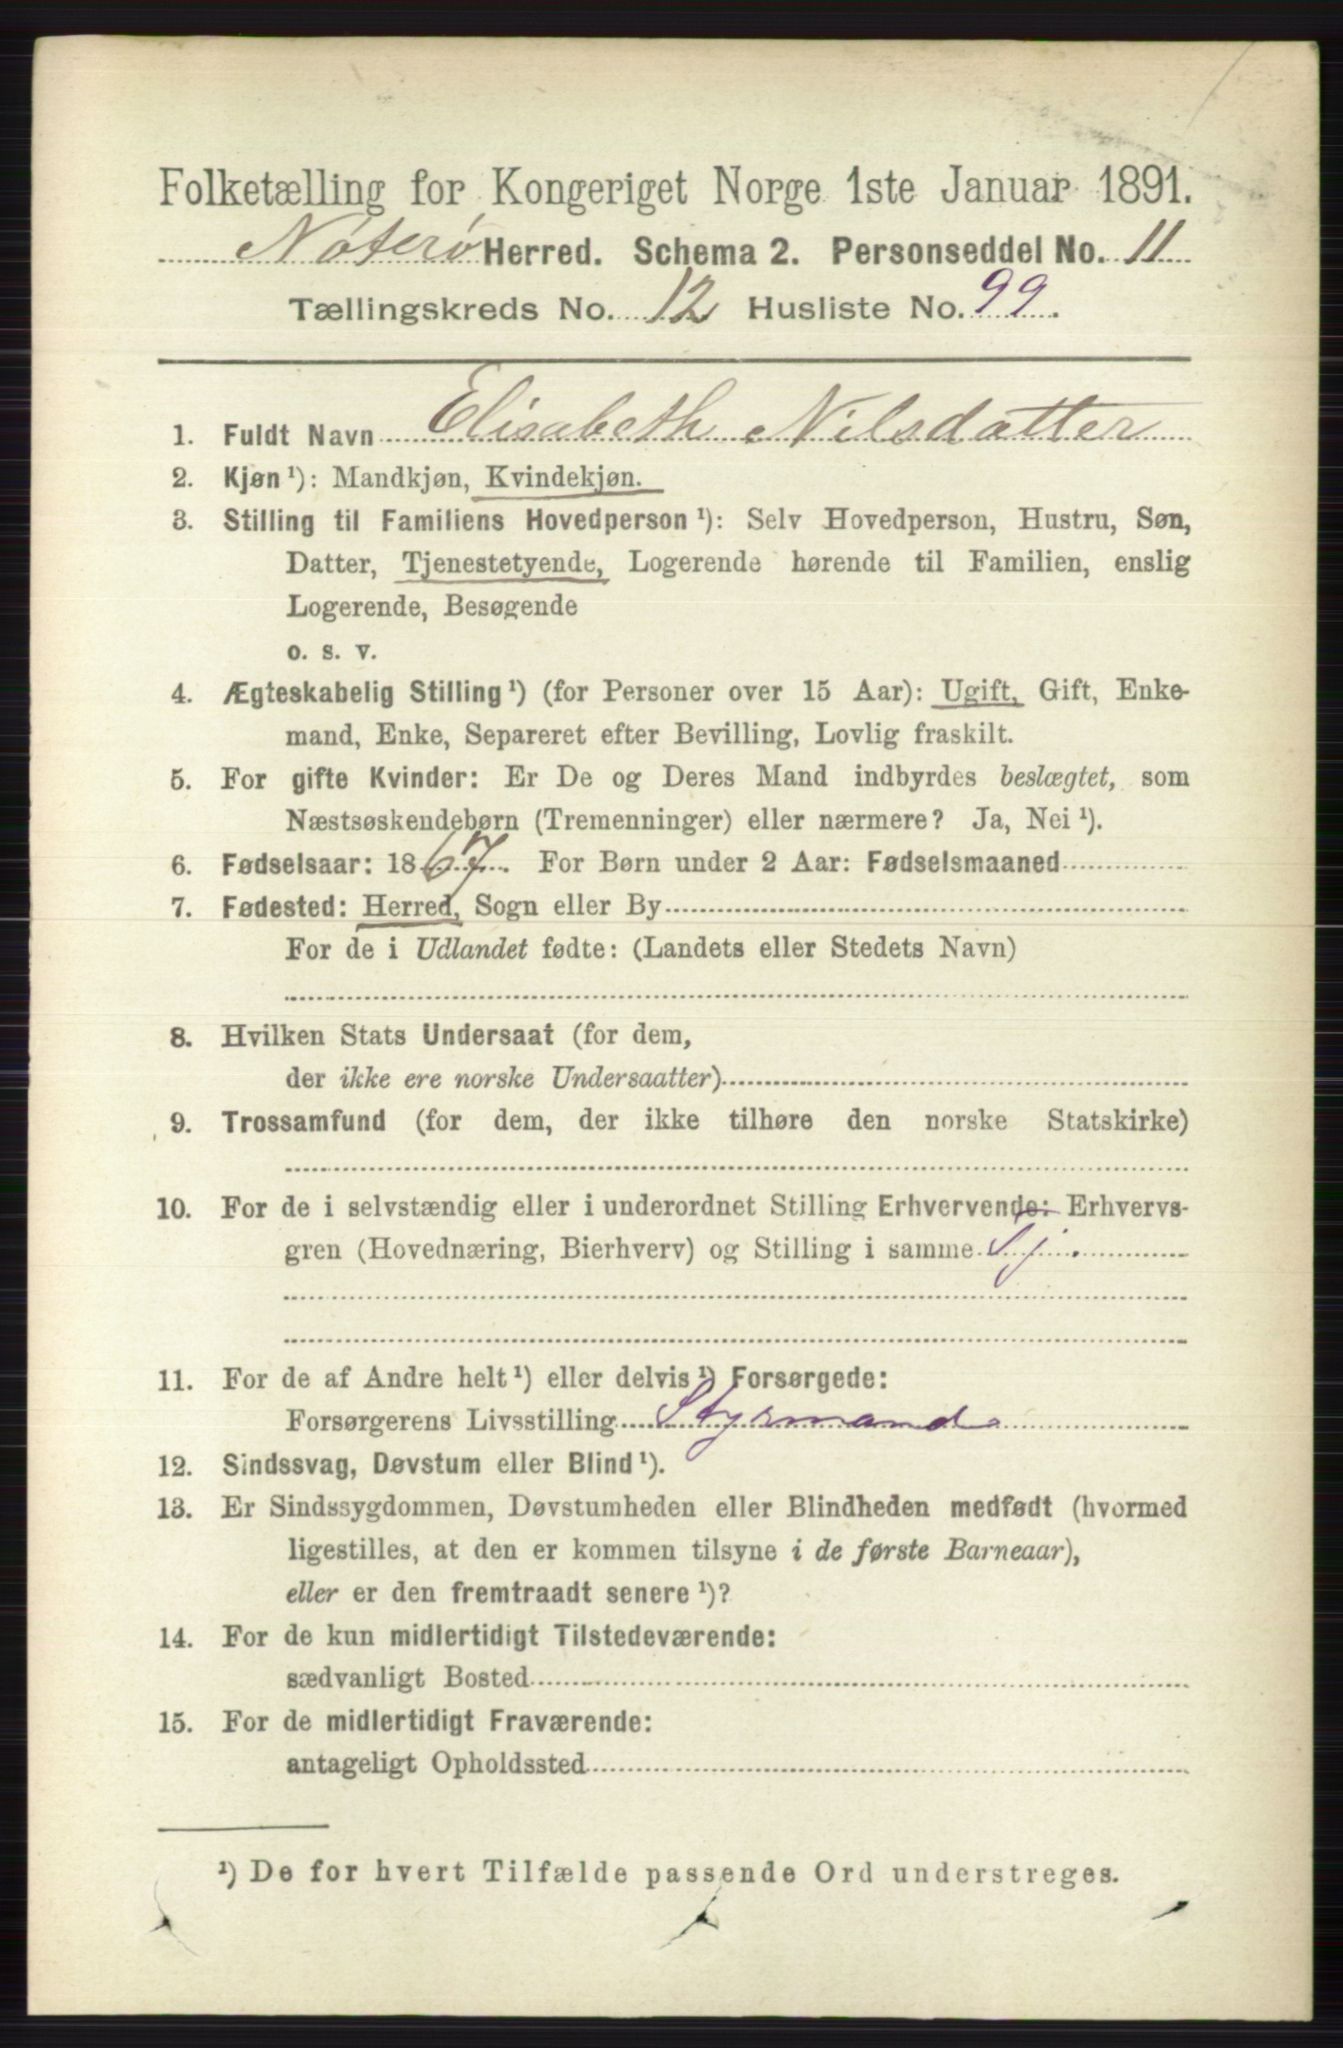 Folketælling for Kongeriget Norge 1ste Januar 1891.
Nøterø Herred. Schema 2. Personseddel No. 11
Tællingskreds No. 12 Husliste No. 99.
1. Fuldt Navn Elisabeth Nilsdatter
2. Kjøn¹): Mandkjøn, Kvindekjøn.
3. Stilling til Familiens Hovedperson¹): Selv Hovedperson, Hustru, Søn,
Datter, Tjenestetyende, Logerende hørende til Familien, enslig
Logerende, Besøgende
o. s. v.
4. Ægteskabelig Stilling¹) (for Personer over 15 Aar): Ugift, Gift, Enke-
mand, Enke, Separeret efter Bevilling, Lovlig fraskilt.
5. For gifte Kvinder: Er De og Deres Mand indbyrdes beslægtet, som
Næstsøskendebørn (Tremenninger) eller nærmere? Ja, Nei¹).
6. Fødselsaar: 1867. For Børn under 2 Aar: Fødselsmaaned
7. Fødested: Herred, Sogn eller By
For de i Udlandet fødte: (Landets eller Stedets Navn)
8. Hvilken Stats Undersaat (for dem,
der ikke ere norske Undersaatter)
9. Trossamfund (for dem, der ikke tilhøre den norske Statskirke)
10. For de i selvstændig eller i underordnet Stilling Erhvervende: Erhvervs-
gren (Hovednæring, Bierhverv) og Stilling i samme Tj.
11. For de af Andre helt¹) eller delvis¹) Forsørgede:
Forsørgerens Livsstilling Styrmand
12. Sindssvag, Døvstum eller Blind¹).
13. Er Sindssygdommen, Døvstumheden eller Blindheden medfødt (hvormed
ligestilles, at den er kommen tilsyne i de første Barneaar),
eller er den fremtraadt senere¹)?
14. For de kun midlertidigt Tilstedeværende:
sædvanligt Bosted
15. For de midlertidigt Fraværende:
antageligt Opholdssted
¹) De for hvert Tilfælde passende Ord understreges.